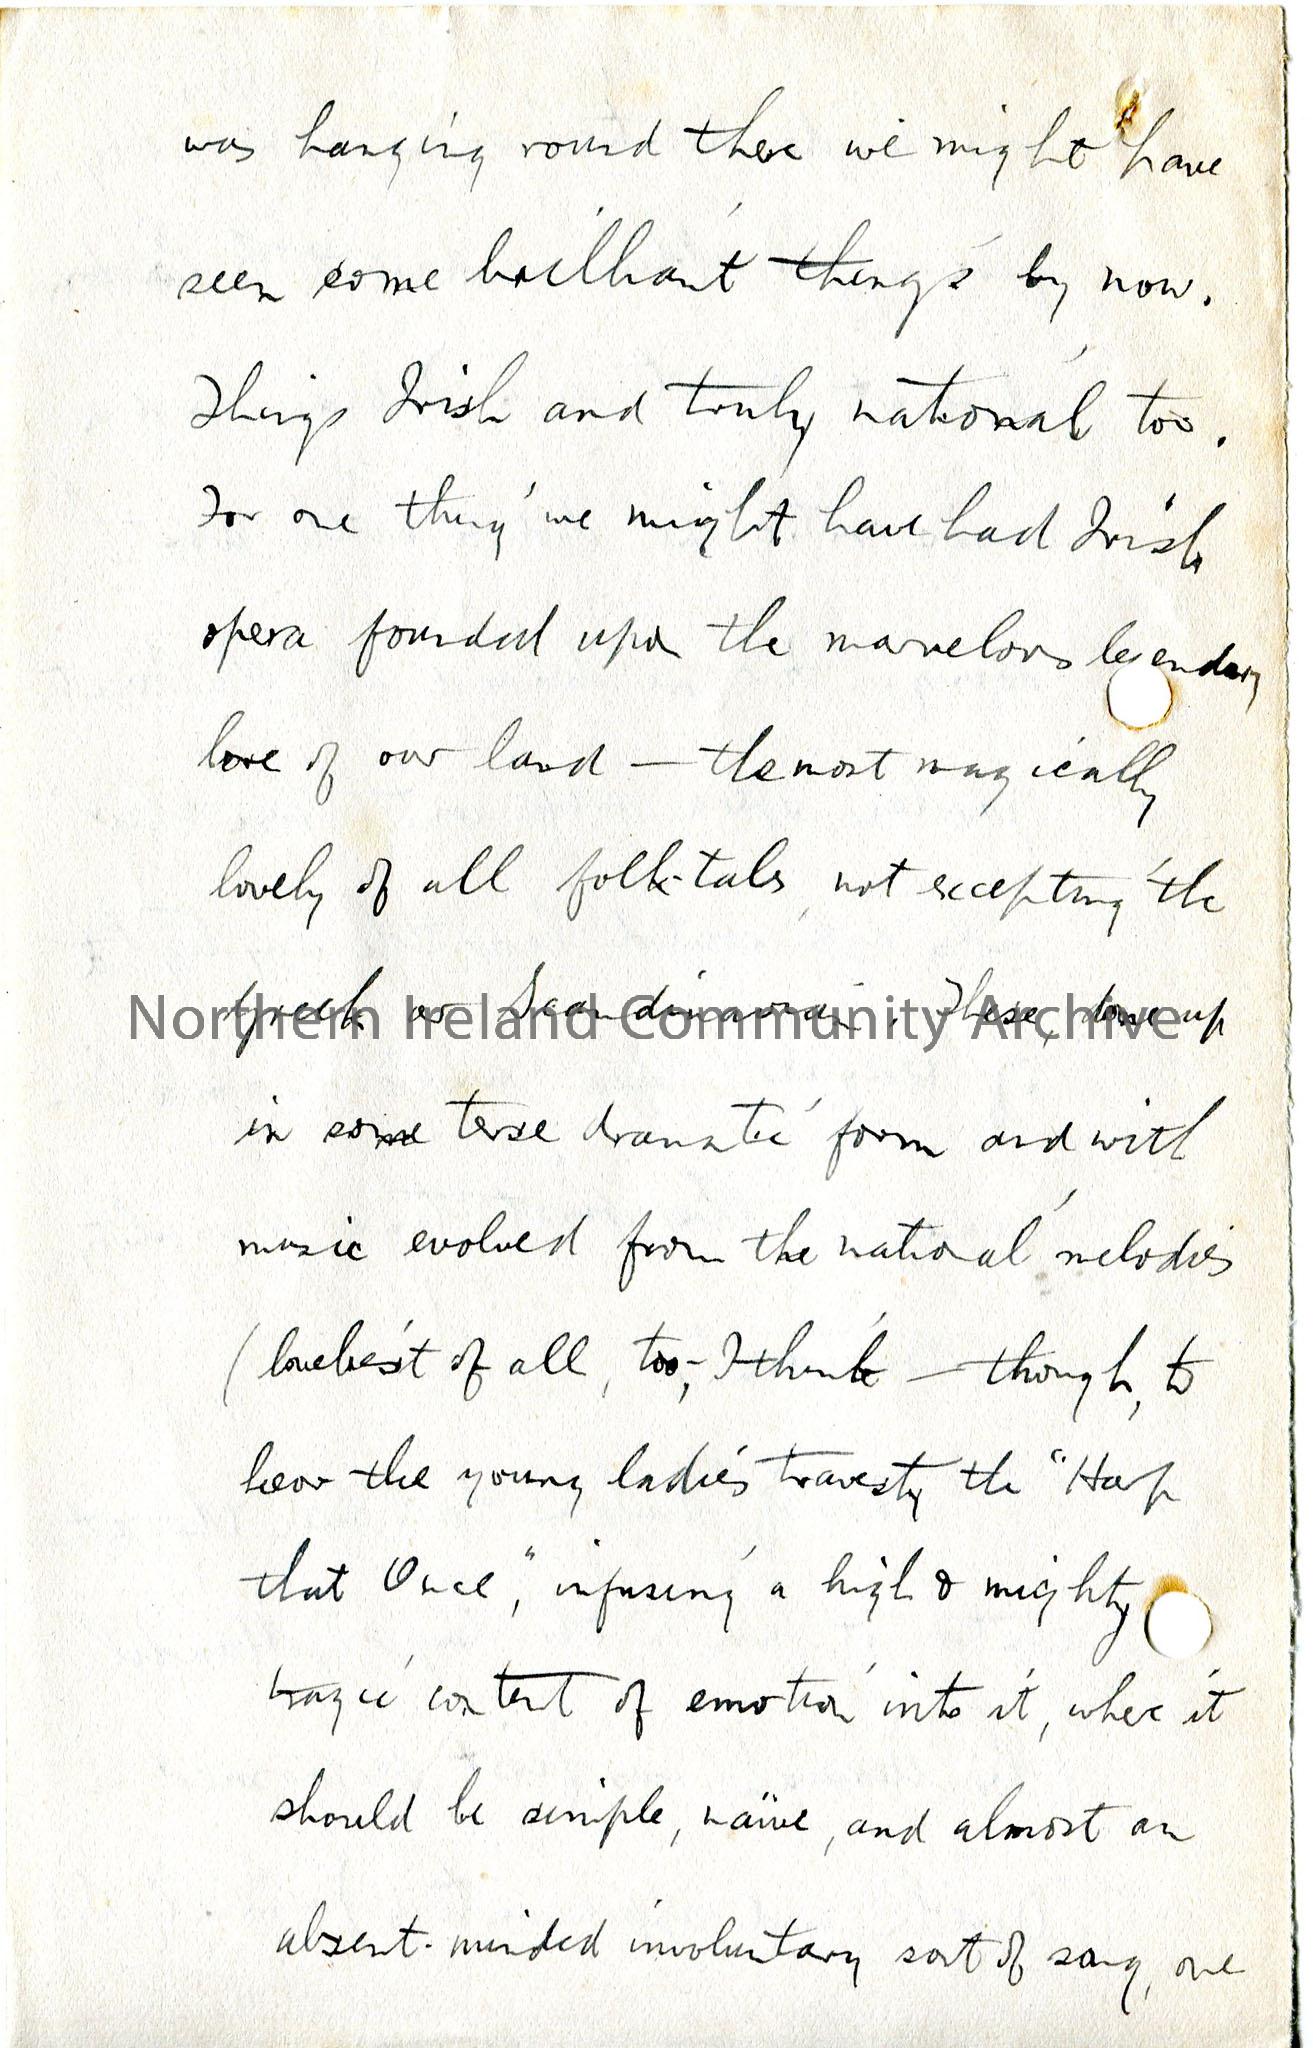 was hanging round there we might have
seen some brilliant things by now.
Things Irish and truly national too.
For one thing we might have had Irish
opera founded upon the marvelous legendary
lore of our land — the most magically
lovely of all folk-tales, not excepting the
Greek or Scandinavian. These, done up
Northern Ireland Community Archive
in some terse dramatic form and with
music evolved from the national melodies
(loveliest of all, too, I think — though, to
hear the young ladies travesty the "Harp
that Once," infusing a high & mighty
tragic content of emotion into it, where it
should be simple, naïve, and almost an
absent-minded involuntary sort of song, one